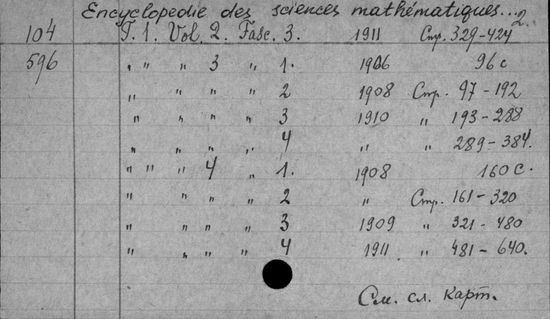 Encyclopedie des sciences mathématiques... 2.
104 T. 1. Vol. 2. Fasc. 3. 1911 Стр. 329-424
596 „ „ „ 3 „ 1. 1906 96 с
„ „ „ „ 2 1908 Стр. 97-192
„ „ „ „ 3 1910 „ 193-288
„ „ „ „ 4 „ „ 289-384.
„ „ „ 4 „ 1. 1908 160 с.
„ „ „ „ 2 „ Стр. 161-320
„ „ „ „ 3 1909 „ 321-480
„ „ „ „ 4 1911 „ 481-640.
См. сл. карт.